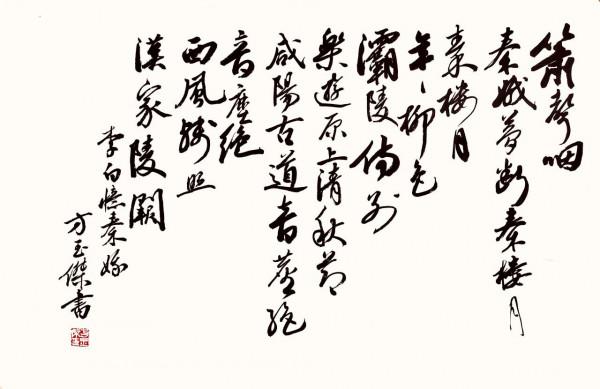 簫聲咽
秦娥夢斷秦樓月
秦樓月
年々柳色
灞陵傷别
樂遊原上清秋節
咸陽古道音塵絶
音塵絶
西風殘照
漢家陵闕
李白憶秦娥
方玉傑書